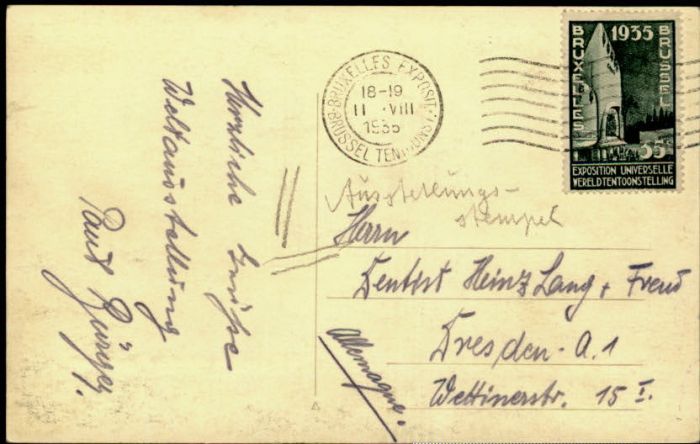 Herzliche Grüße
Weltausstellung
Paul
BRUXELLES-EXPOSIT.
18-19
11 VIII
1935
BRUSSEL TENTOONST.
1935
BRUXELLES
BRUSSEL
35c
EXPOSITION UNIVERSELLE
WERELDTENTOONSTELLING
Ausstellungs-
stempel
Herrn
Dentist Heinz Lang + Freud
Dresden-A.1
Wettinerstr. 15 I.
Allemagne.